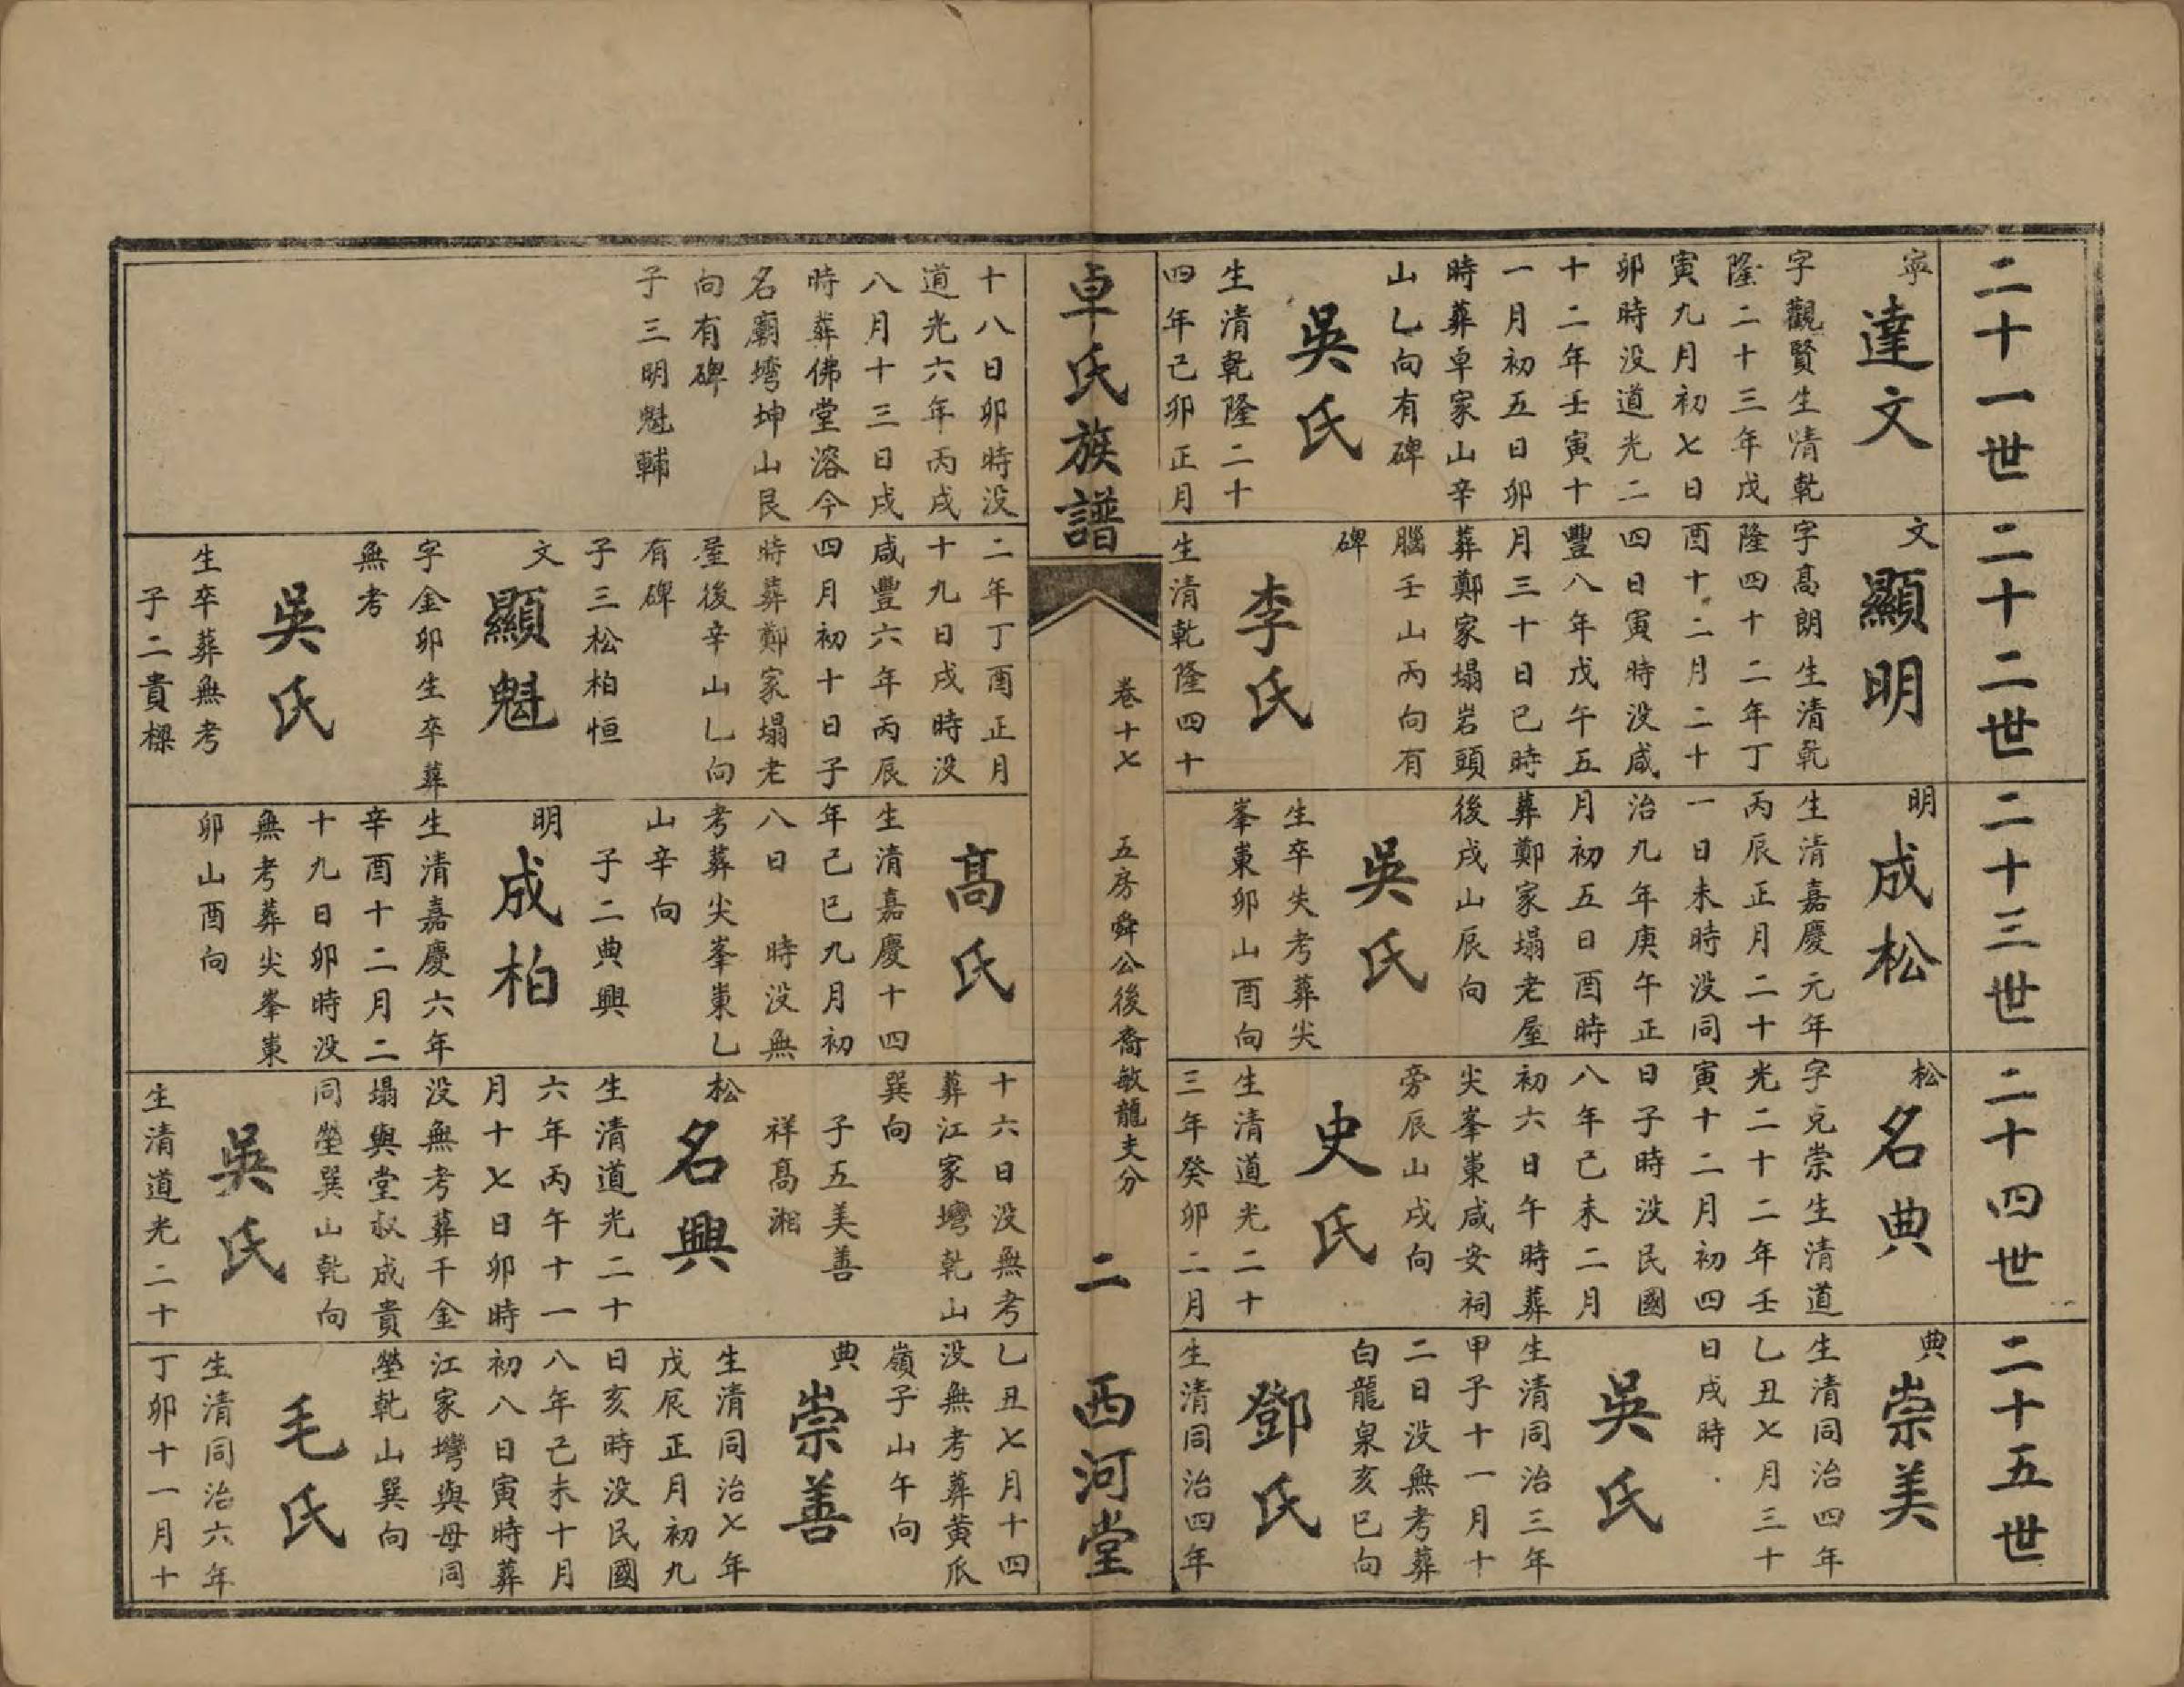 二十一世
寧
達文
字觀賢生清乾
隆二十三年戊
寅九月初七日
卯時没道光二
十二年壬寅十
一月初五日卯
時葬卓家山辛
山乚向有碑
吳氏
生清乾隆二十
四年己卯正月
十八日卯時没
道光六年丙戌
八月十三日戌
時葬佛堂溶今
名廟塆坤山艮
向有碑
子三明魁輔
二十二世
文
顯明
字高朗生清乾
隆四十二年丁
酉十二月二十
四日寅時没咸
豐八年戊午五
月三十日巳時
葬鄭家塌岩頭
腦壬山丙向有
碑
李氏
生清乾隆四十
二年丁酉正月
十九日戌時没
咸豐六年丙辰
四月初十日子
時葬鄭家塌老
屋後辛山乚向
有碑
子三松柏恒
文
顯魁
字金卯生卒葬
無考
吳氏
生卒葬無考
子二貴樑
二十三世
明
成松
生清嘉慶元年
丙辰正月二十
一日未時没同
治九年庚午正
月初五日酉時
葬鄭家塌老屋
後戌山辰向
吳氏
生卒失考葬尖
峯東卯山酉向
高氏
生清嘉慶十四
年己巳九月初
八日 時没無
考葬尖峯東乚
山辛向
子二典興
明
成柏
生清嘉慶六年
辛酉十二月二
十九日卯時没
無考葬尖峯東
卯山酉向
二十四世
松
名典
字克崇生清道
光二十二年壬
寅十二月初四
日子時没民國
八年己未二月
初六日午時葬
尖峯東咸安祠
旁辰山戌向
史氏
生清道光二十
三年癸卯二月
十六日没無考
葬江家塆乾山
巽向
子五美善
祥高湘
松
名興
生清道光二十
六年丙午十一
月十七日卯時
没無考葬干金
塌與堂叔成貴
同塋巽山乾向
吳氏
生清道光二十
二十五世
典
崇美
生清同治四年
乚丑七月三十
日戌時
吳氏
生清同治三年
甲子十一月十
二日没無考葬
白龍泉亥巳向
鄧氏
生清同治四年
乚丑七月十四
没無考葬黃瓜
嶺子山午向
典
崇善
生清同治七年
戊辰正月初九
日亥時没民國
八年己未十月
初八日寅時葬
江家塆與母同
塋乾山巽向
毛氏
生清同治六年
丁卯十一月十
卓氏族譜
卷十七
五房舜公後裔敏龍支分
二
西河堂